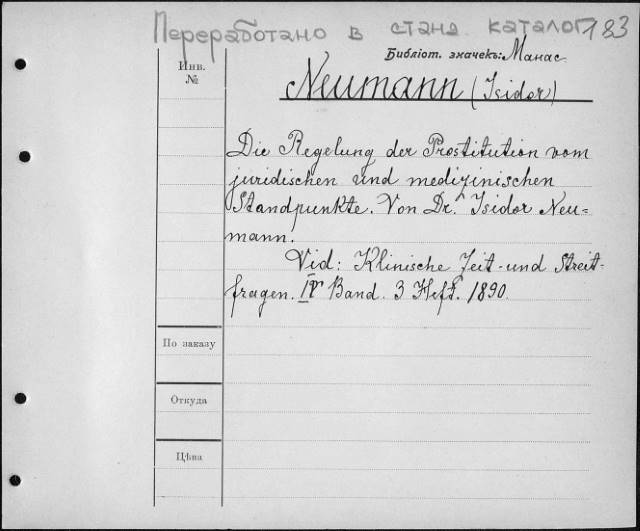 Переработано в станд. каталог 183
Библіот. значекъ: Манас.
Инв.
№
Neumann (Isidor)
Die Regelung der Prostitution vom
juridischen und medizinischen
Standpunkte. Von Dr. Isidor Neu-
mann.
Vid: Klinische Zeit- und Streit-
fragen. IV Band. 3 Heft. 1890.
По заказу
Откуда
Цѣна